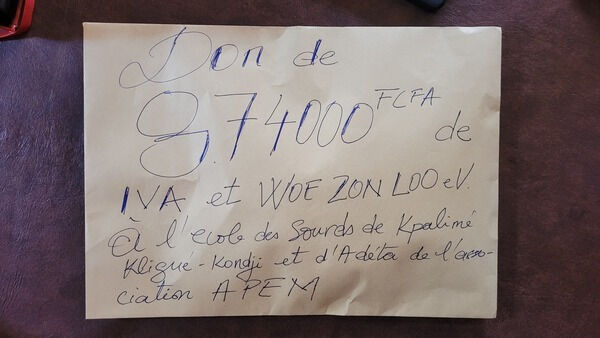 Don de
8.74000 FCFA de
IVA et WOE ZON LOO eV.
à l'ecole des Sourds de Kpalimé
Kligué-Kondji et d'Adéta de l'asso-
ciation APEM